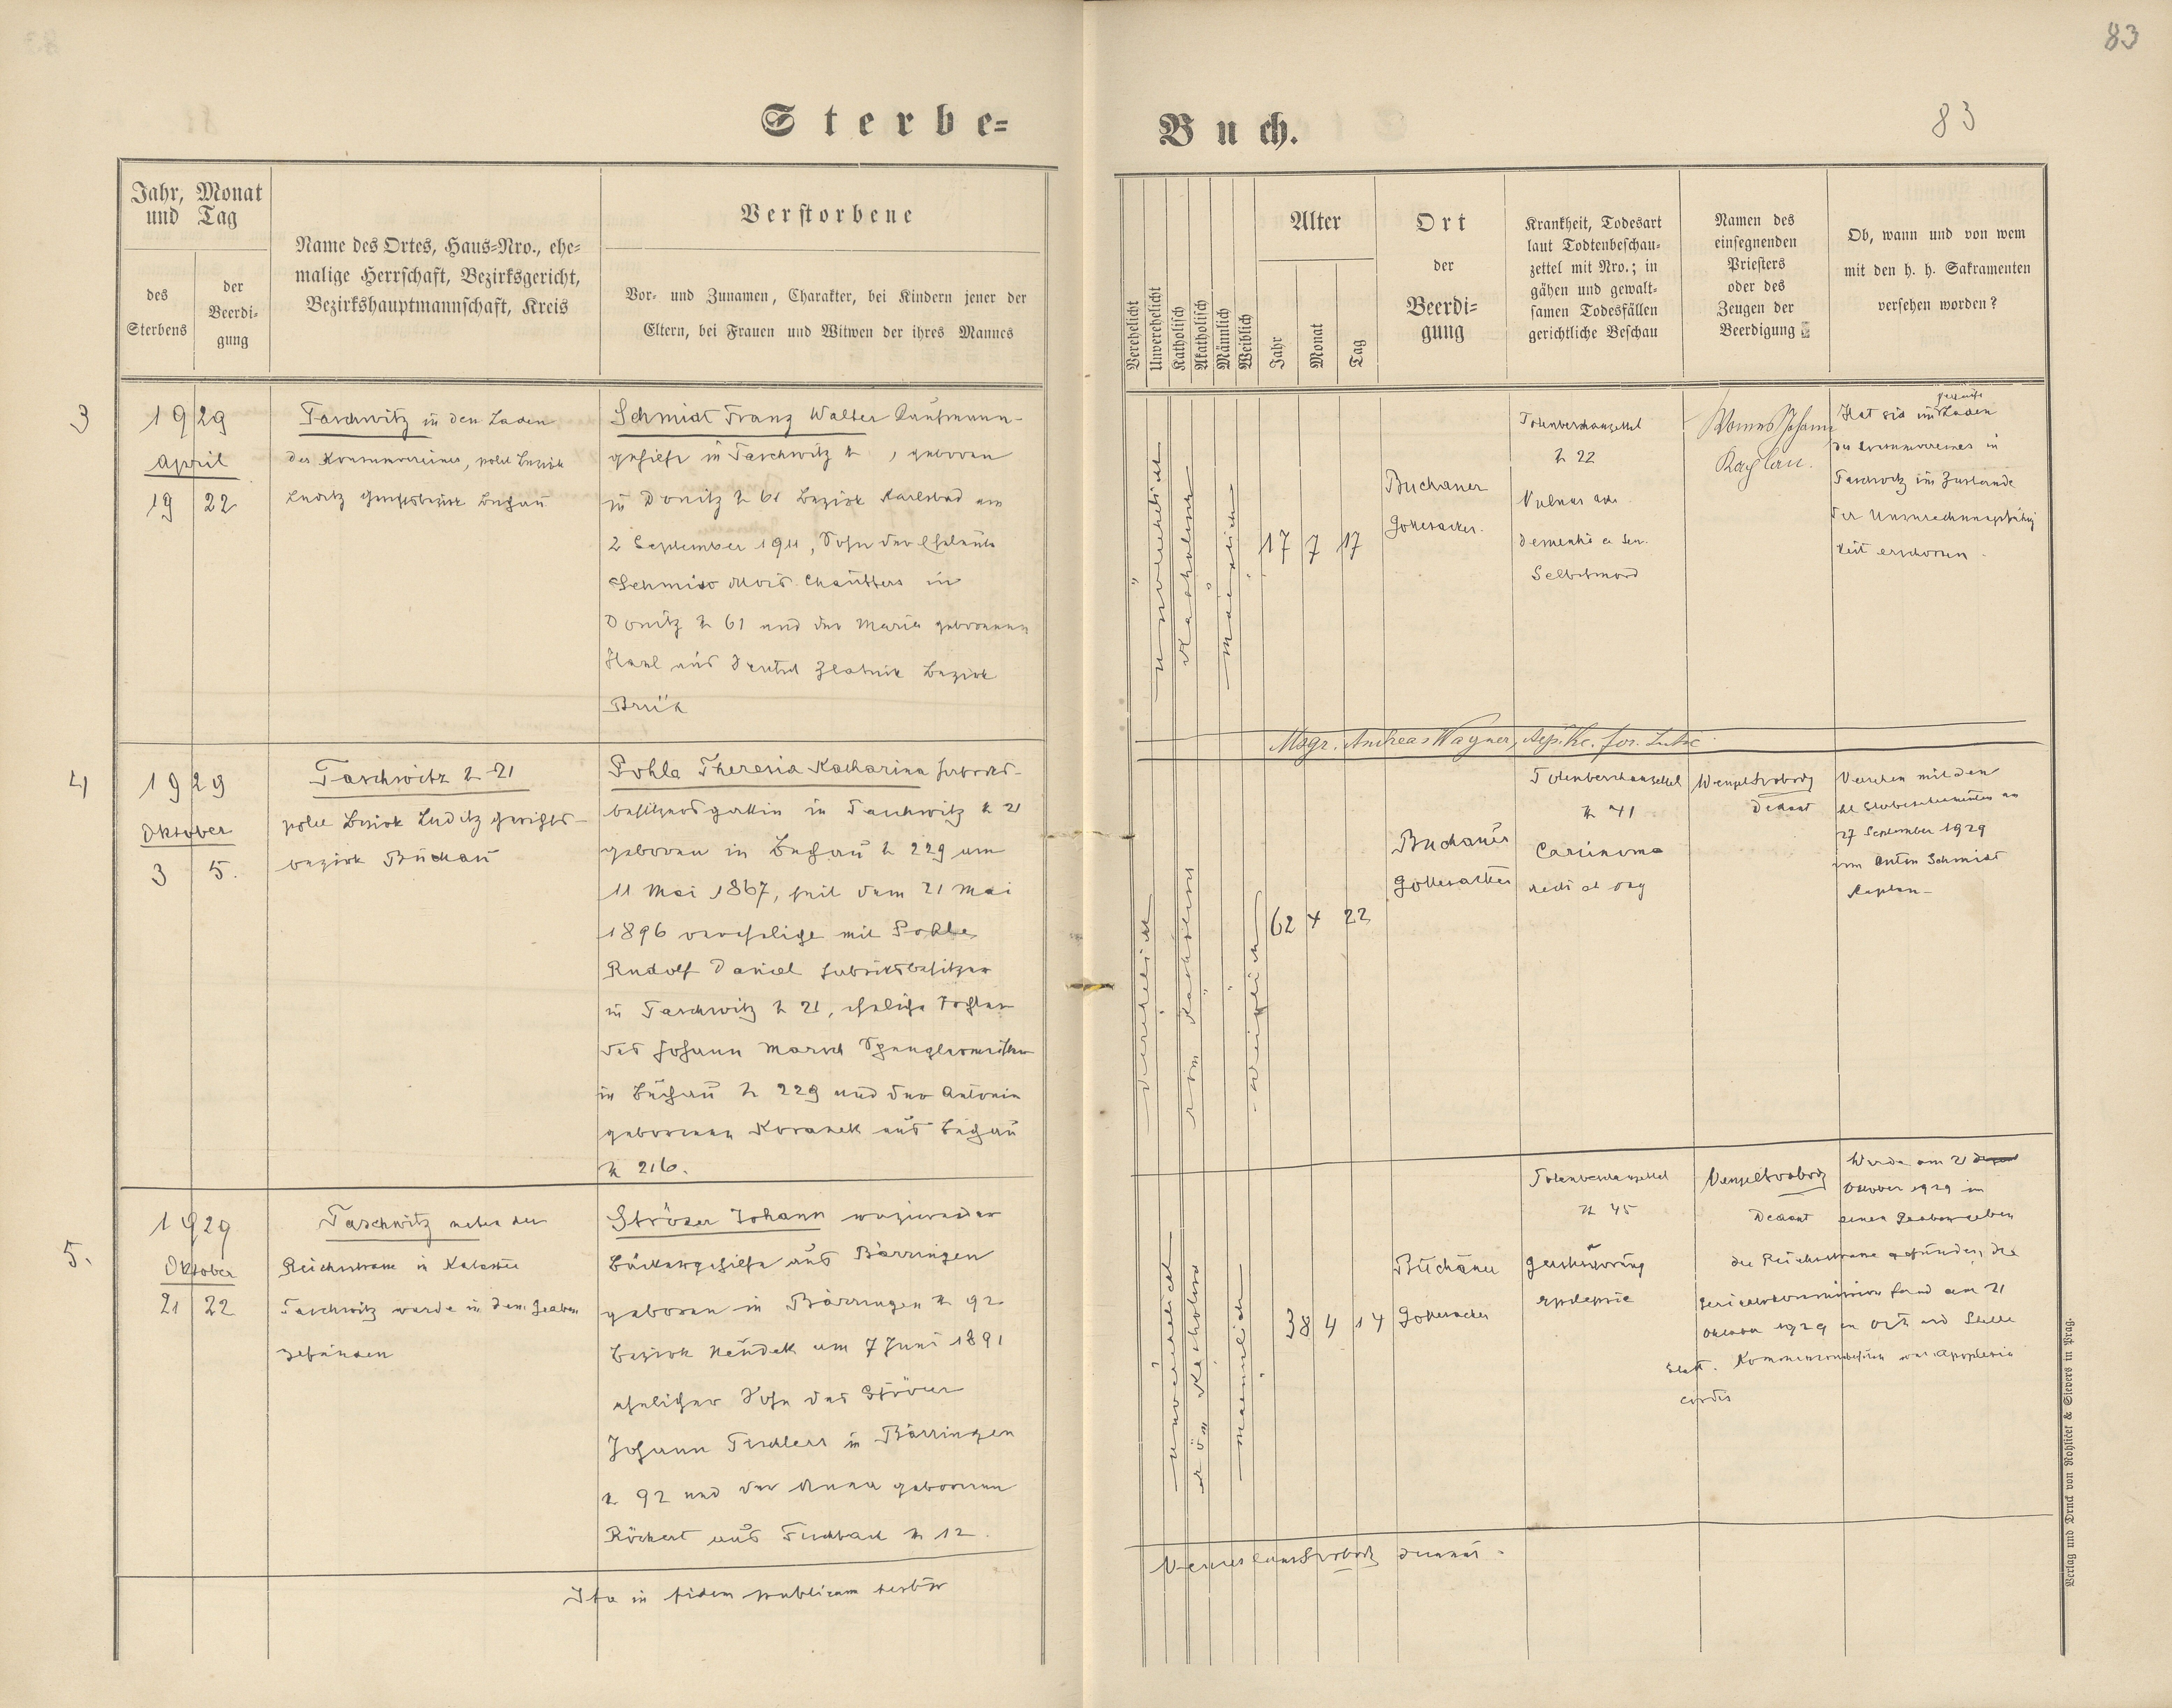 83
Sterbe=
Buch.
83
Jahr, Monat
und Tag
des
Sterbens
der
Beerdi-
gung
Name des Ortes, Haus=Nro., ehe-
malige Herrschaft, Bezirksgericht,
Bezirkshauptmannschaft, Kreis
Verstorbene
Vor- und Zunamen, Charakter, bei Kindern jener der
Eltern, bei Frauen und Witwen der ihres Mannes
Verehelicht
Unverehelicht
Katholisch
Akatholisch
Männlich
Weiblich
Alter
Jahr
Monat
Tag
Ort
der
Beerdi=
gung
Krankheit, Todesart
laut Todtenbeschau-
zettel mit Nro.; in
gähen und gewalt-
samen Todesfällen
gerichtliche Beschau
Namen des
einsegnenden
Priesters
oder des
Zeugen der
Beerdigung
Ob, wann und von wem
mit den h. h. Sakramenten
versehen worden?
3
1929
april
19 22
Taschwitz in den Laden
des Konsumvereines, polit Bezirk
Luditz Gerichtsbezirk Buchau
Schmidt Franz Walter Kaufmann-
gehilfe in Taschwitz N , geboren
in Donitz N 61 Bezirk Karlsbad am
2 September 1911, Sohn der Eheleute
Schmidt Alois Chauffers in
Donitz N 61 und der Maria geborenen
aus Deutsch Zlatnik Bezirk
Brüx
unverehelicht
Katholisch
männlich
17 7 17
Buchauer
Gottesacker.
Totenbeschauzettel
N 22
Vulnus
Selbstmord
Johann
Kaplan.
Hat sich im Laden
des Konsumvereines in
Taschwitz im Zustande
der Unzurechnungsfähig
keit erschossen.
Msgr. Andreas Wagner, Aep. Vic. for. Lutic
4
1929
Oktober
3 5.
Taschwitz N 21
polit Bezirk Luditz Gerichts-
bezirk Buchau
Pohla Theresia Katharina Fabriks-
besitzersgattin in Taschwitz N 21
geboren in Buchau N 229 am
11 Mai 1867, seit dem 21 Mai
1896 verehelicht mit Pohla
Rudolf Daniel Fabriksbesitzer
in Taschwitz N 21, eheliche Tochter
des Johann Marsch Spenglermeister
in Buchau N 229 und der Antonia
geborenen Koranek aus Buchau
N 216.
verehelicht
röm Katholisch
weiblich
62 4 22
Buchauer
Gottesacker
Totenbeschauzettel
N 41
Carcinoma
recti et
Wenzel Svoboda
Dechant
Versehen mit den
hl Sterbesakramenten am
27 September 1929
vom Anton Schmidt
Kaplan-
5.
1929
Oktober
21 22
Taschwitz neben der
Reichsstrasse in Kataster
Taschwitz wurde in dem Graben
gefunden
Ströer Johann vazierender
Bäckergehilfe aus Bärringen
geboren in Bärringen N 92
Bezirk Neudek am 7 Juni 1891
ehelicher Sohn des Ströer
Johann Tischlers in Bärringen
N 92 und der Anna geborenen
Röckert aus Fischbach N 12.
unverehelicht
röm Katholisch
männlich
38 4 14
Buchauer
Gottesacker
Totenbeschauzettel
N 45
epilepsie
Wenzel Svoboda
Dechant
Wurde am 21
Oktober 1929 im
einen Graben neben
der Reichsstrasse gefunden, die
Gerichtskommission fand am 21
Oktober 1929 an Ort und Stelle
statt. war Apoplexia
cordis
Ita in fidem publicam testor
Svoboda decanus.
Verlag und Druck von Rohliček & Sievers in Prag.